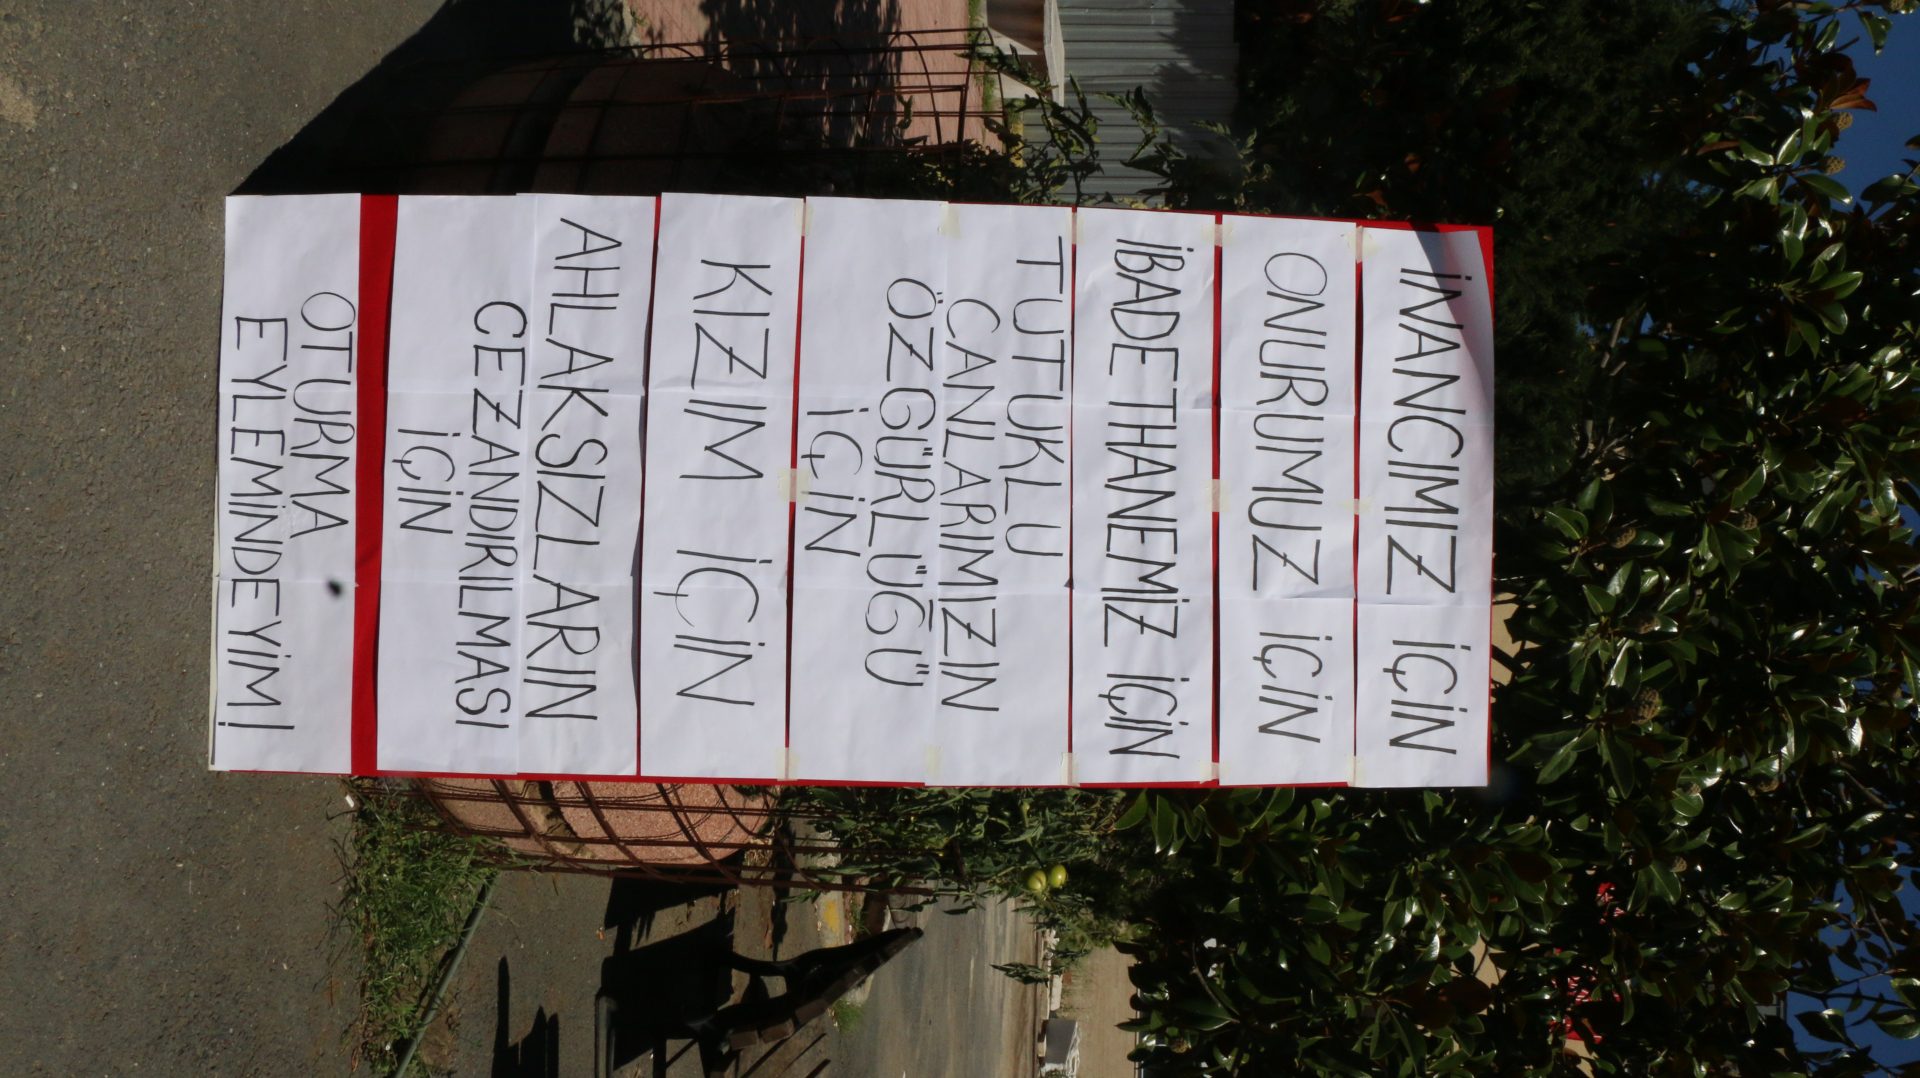 İNANCIMIZ İÇİN
ONURUMUZ İÇİN
İBADETHANEMİZ İÇİN
TUTUKLU
CANLARIMIZIN
ÖZGÜRLÜĞÜ
İÇİN
KIZIM İÇİN
AHLAKSIZLARIN
CEZANDIRILMASI
İÇİN
OTURMA
EYLEMİNDEYİM!